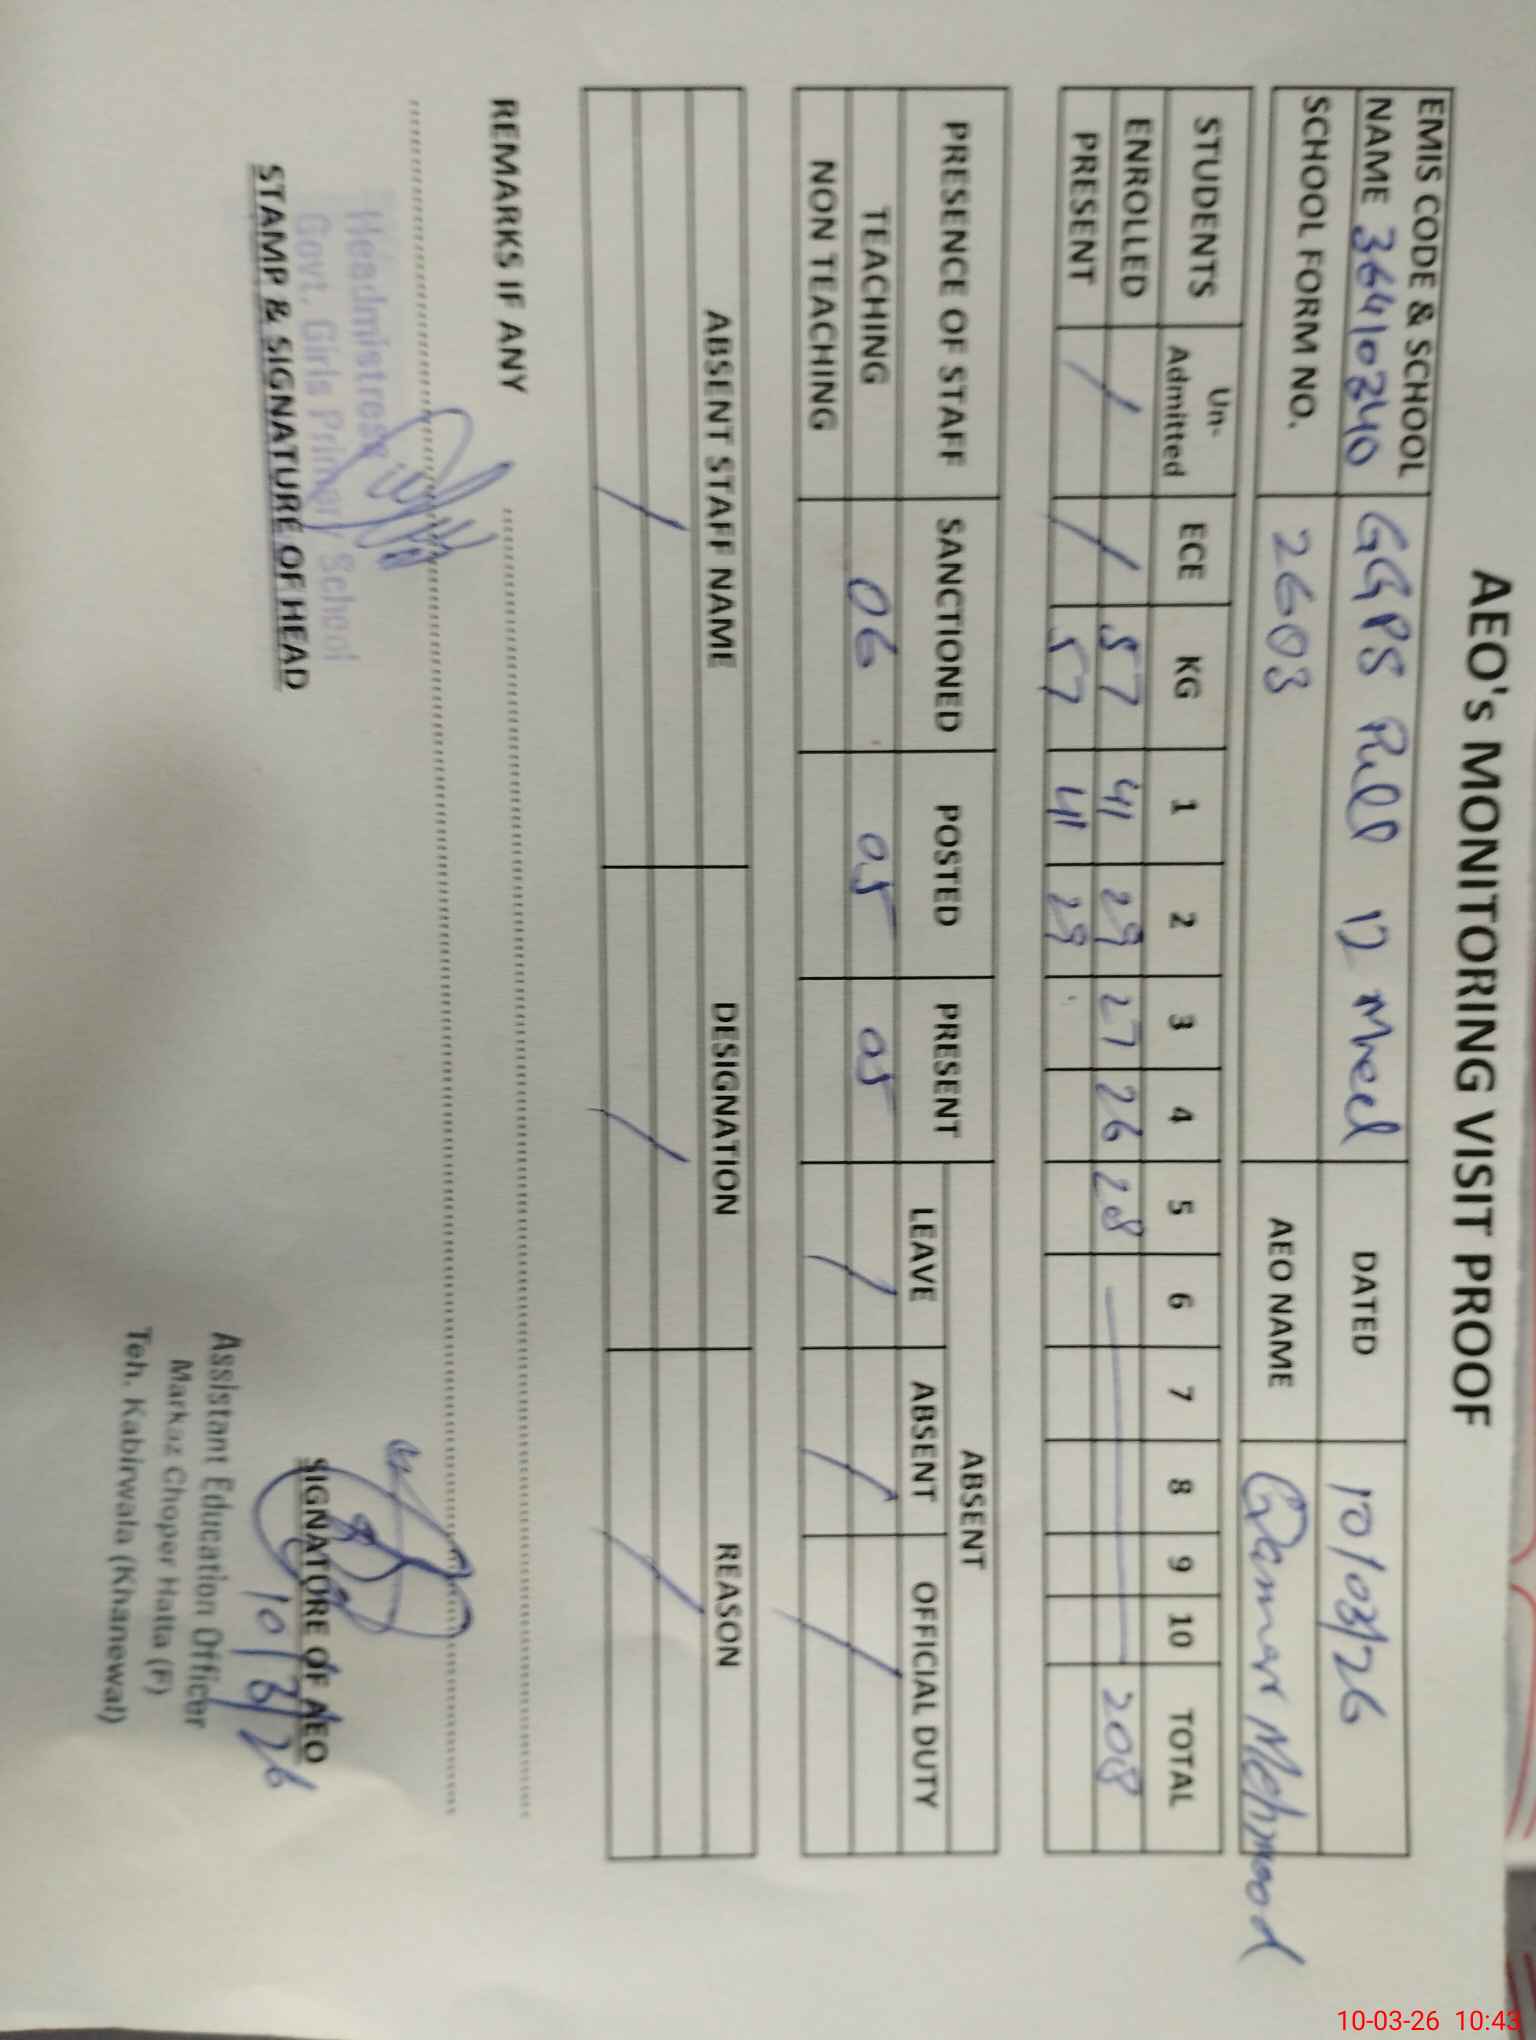 AEO's MONITORING VISIT PROOF
EMIS CODE & SCHOOL NAME 36410340 GGPS Pull 12 Meel DATED 10/03/26
SCHOOL FORM NO. 2603 AEO NAME Qamar Mehmood
STUDENTS Un-Admitted ECE KG 1 2 3 4 5 6 7 8 9 10 TOTAL
ENROLLED / / 57 41 29 27 26 28 208
PRESENT 57 41 29
PRESENCE OF STAFF SANCTIONED POSTED PRESENT ABSENT
LEAVE ABSENT OFFICIAL DUTY
TEACHING 06 05 05 / / /
NON TEACHING
ABSENT STAFF NAME DESIGNATION REASON
/ / /
REMARKS IF ANY
Headmistress
Govt. Girls Primary School
STAMP & SIGNATURE OF HEAD
SIGNATURE OF AEO
10/3/26
Assistant Education Officer
Markaz Choper Hatta (F)
Teh. Kabirwala (Khanewal)
10-03-26 10:43